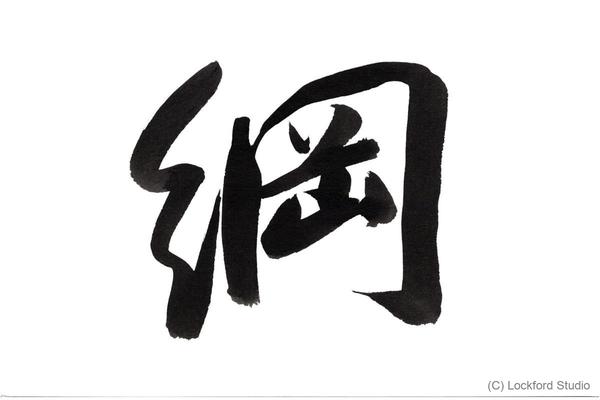 綱
(C) Lockford Studio